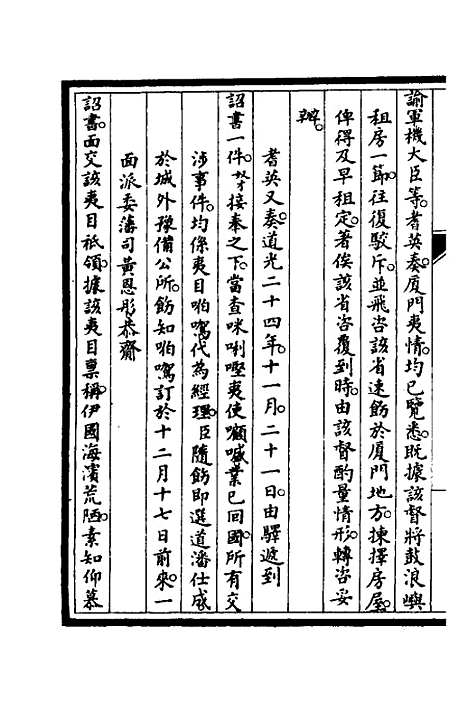 諭軍機大臣等。耆英奏廈門夷情。均已覽悉。既據該督將鼓浪嶼
租房一節。往復駁斥。並飛咨該省速飭於廈門地方。揀擇房屋。
俾得及早租定。著俟該省咨覆到時。由該督酌量情形。轉咨妥
辦。
耆英又奏。道光二十四年。十一月。二十一日。由驛遞到
詔書一件。等接奉之下。當查咪唎㗷夷使顧𠾐業已回國。所有交
涉事件。均係夷目咱嗎代為經理。臣隨飭即選道潘仕成
於城外豫備公所。飭知咱嗎訂於十二月十七日前來。一
面派委藩司黃恩彤恭齎
詔書。面交該夷目祗領。據該夷目稟稱。伊國海濱荒陋。素知仰慕